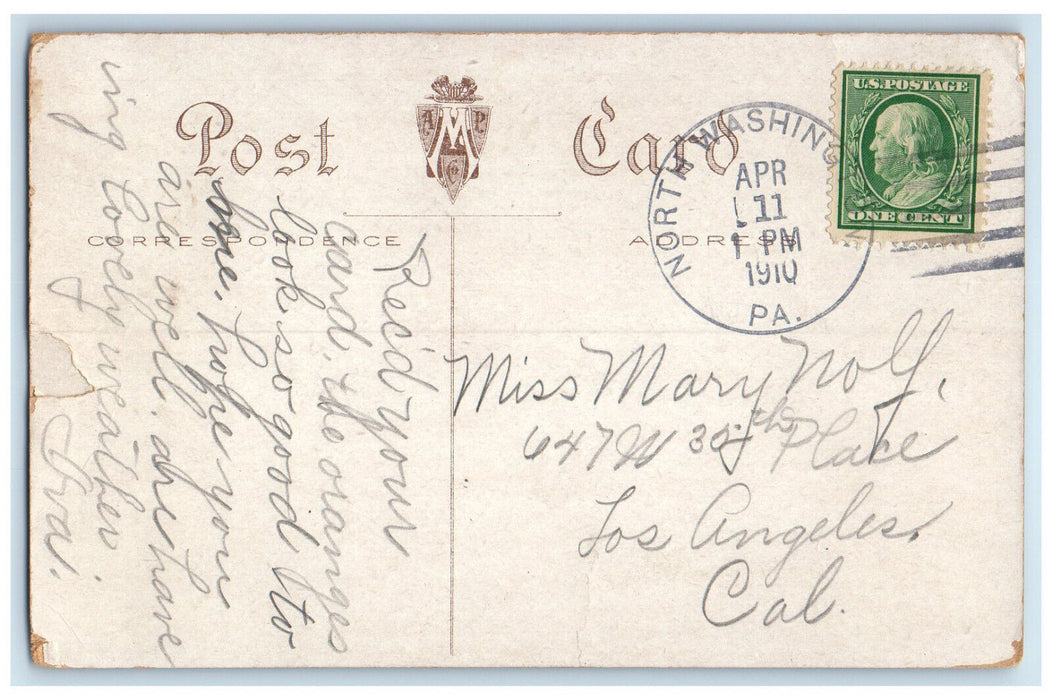 Post Card
A M P
Co
CORRESPONDENCE
ADDRESS
U.S. POSTAGE
ONE CENT
NORTH WASHING
APR
11
1 PM
1910
PA.
Rec'd your
card, the oranges
look so good to
me, hope you
are well. are have
ing lovely weather
Iva.
Miss Mary Nolf,
647 W 35th Place
Los Angeles,
Cal.